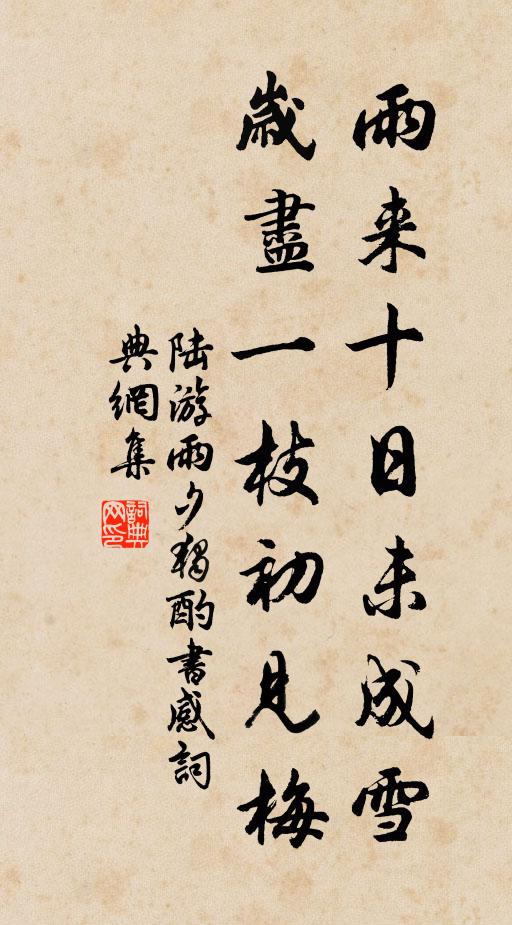 雨来十日未成雪
歳盡一枝初見梅
陆游雨夕獨酌書感詞
典網集
詞典
网印